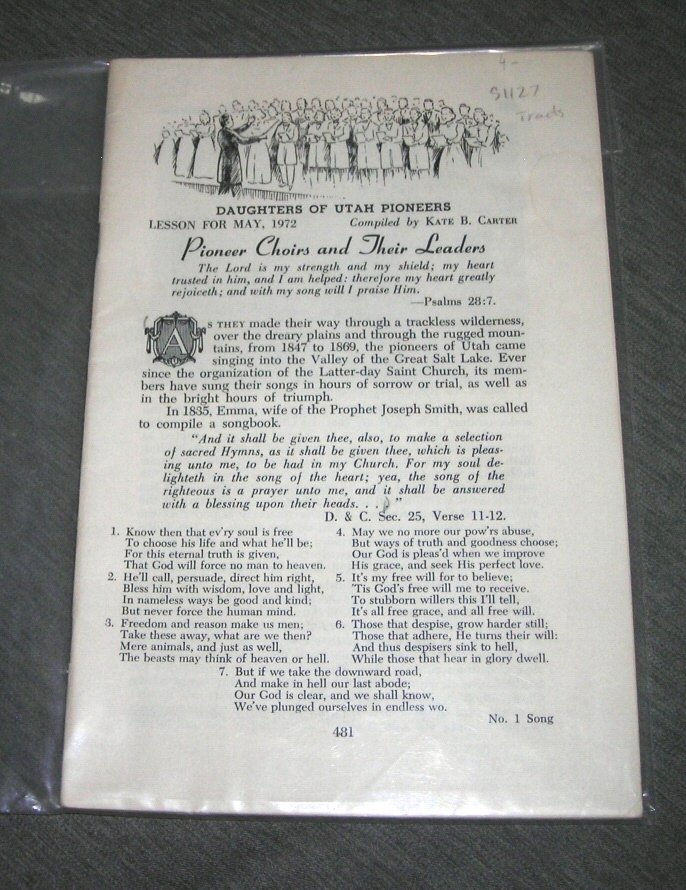 4-
SH27
Tracts
DAUGHTERS OF UTAH PIONEERS
LESSON FOR MAY, 1972 Compiled by KATE B. CARTER
Pioneer Choirs and Their Leaders
The Lord is my strength and my shield; my heart
trusted in him, and I am helped: therefore my heart greatly
rejoiceth; and with my song will I praise Him.
—Psalms 28:7.
AS THEY made their way through a trackless wilderness,
over the dreary plains and through the rugged moun-
tains, from 1847 to 1869, the pioneers of Utah came
singing into the Valley of the Great Salt Lake. Ever
since the organization of the Latter-day Saint Church, its mem-
bers have sung their songs in hours of sorrow or trial, as well as
in the bright hours of triumph.
In 1835, Emma, wife of the Prophet Joseph Smith, was called
to compile a songbook.
"And it shall be given thee, also, to make a selection
of sacred Hymns, as it shall be given thee, which is pleas-
ing unto me, to be had in my Church. For my soul de-
lighteth in the song of the heart; yea, the song of the
righteous is a prayer unto me, and it shall be answered
with a blessing upon their heads. . . ."
D. & C. Sec. 25, Verse 11-12.
1. Know then that ev'ry soul is free
To choose his life and what he'll be;
For this eternal truth is given,
That God will force no man to heaven.
2. He'll call, persuade, direct him right,
Bless him with wisdom, love and light,
In nameless ways be good and kind;
But never force the human mind.
3. Freedom and reason make us men;
Take these away, what are we then?
Mere animals, and just as well,
The beasts may think of heaven or hell.
4. May we no more our pow'rs abuse,
But ways of truth and goodness choose;
Our God is pleas'd when we improve
His grace, and seek His perfect love.
5. It's my free will for to believe;
'Tis God's free will me to receive.
To stubborn willers this I'll tell,
It's all free grace, and all free will.
6. Those that despise, grow harder still;
Those that adhere, He turns their will:
And thus despisers sink to hell,
While those that hear in glory dwell.
7. But if we take the downward road,
And make in hell our last abode;
Our God is clear, and we shall know,
We've plunged ourselves in endless wo.
No. 1 Song
481